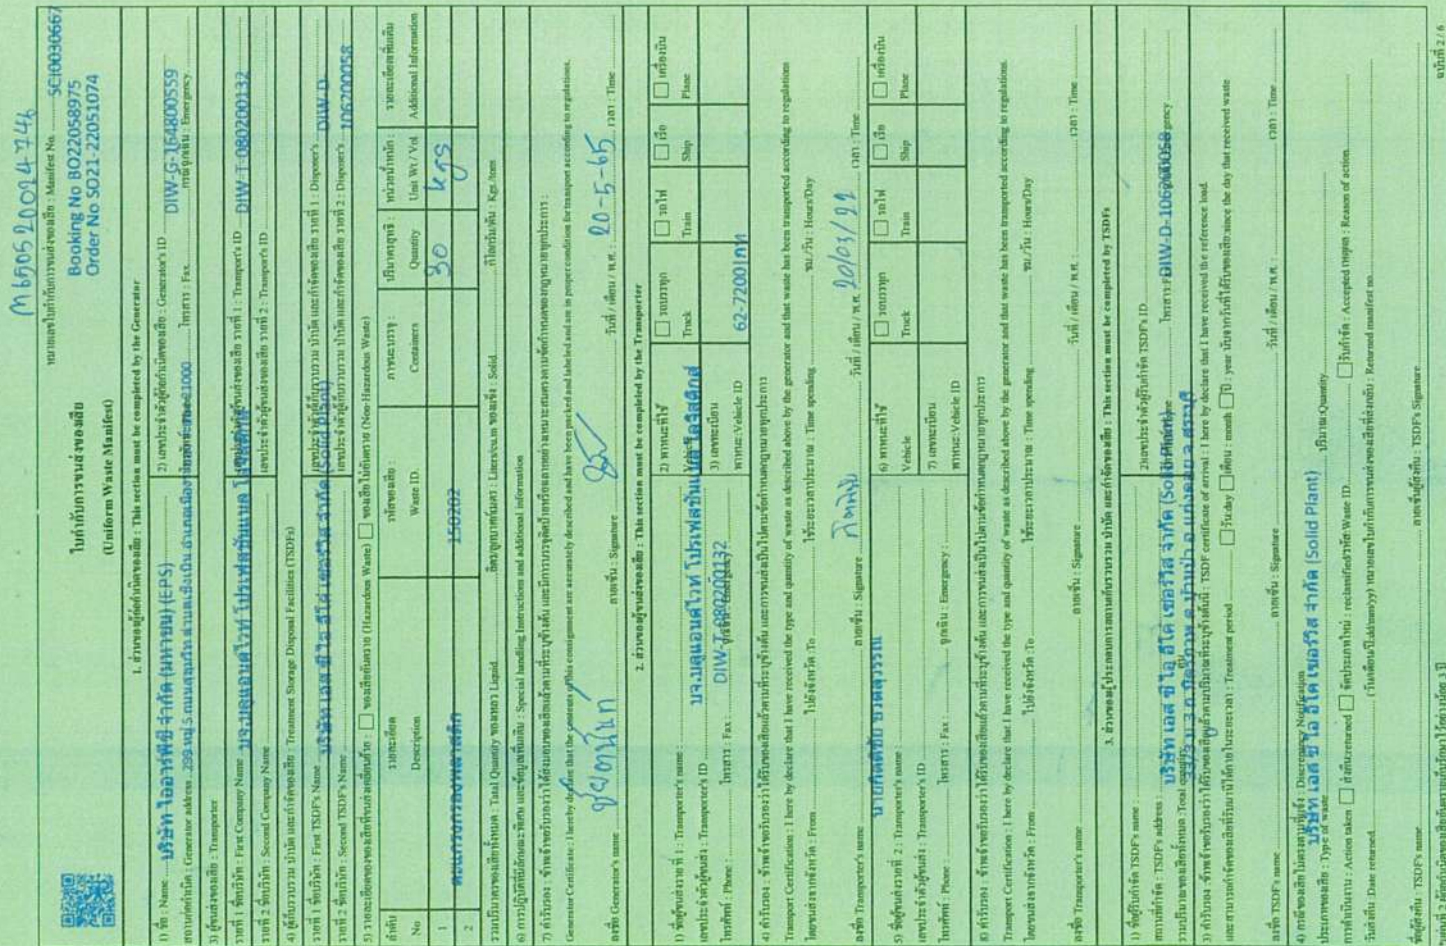 M650520024746
ใบกำกับการขนส่งของเสีย
(Uniform Waste Manifest)
หมายเลขใบกำกับการขนส่งของเสีย : Manifest No. SCI0030667
Booking No BO22058975
Order No SO21-22051074
1. ส่วนของผู้ก่อกำเนิดของเสีย : This section must be completed by the Generator
1) ชื่อ : Name บริษัท ไออาร์พีซี จำกัด (มหาชน) (EPS)
2) เลขประจำตัวผู้ก่อกำเนิดของเสีย : Generator's ID DIW-G-164800559
สถานก่อกำเนิด : Generator address 299 หมู่ 5 ถนนสุขุมวิท ตำบลเชิงเนิน อำเภอเมือง 21000 โทรสาร : Fax กรณีฉุกเฉิน : Emergency
3) ผู้ขนส่งของเสีย : Transporter
รายที่ 1 ชื่อบริษัท : First Company Name บจ.บลูแอนด์ไวท์ โปรเฟสชั่นแนล โลจิสติกส์ เลขประจำตัวผู้ขนส่งของเสีย รายที่ 1 : Transport's ID DIW-T-080200132
รายที่ 2 ชื่อบริษัท : Second Company Name เลขประจำตัวผู้ขนส่งของเสีย รายที่ 2 : Transport's ID
4) ผู้เก็บรวบรวม บำบัด และกำจัดของเสีย : Treatment Storage Disposal Facilities (TSDFs)
รายที่ 1 ชื่อบริษัท : First TSDF's Name บริษัท เอส ซี ไอ อีโค่ เซอร์วิส จำกัด (Solid Plant) เลขประจำตัวผู้เก็บรวบรวม บำบัด และกำจัดของเสีย รายที่ 1 : Disposer's DIW-D-
รายที่ 2 ชื่อบริษัท : Second TSDF's Name เลขประจำตัวผู้เก็บรวบรวม บำบัด และกำจัดของเสีย รายที่ 2 : Disposer's 106200058
5) รายละเอียดของของเสียที่ขนส่งเคลื่อนย้าย : ของเสียอันตราย (Hazardous Waste) ของเสียไม่อันตราย (Non-Hazardous Waste)
ลำดับ รายละเอียด รหัสของเสีย : ภาชนะบรรจุ : ปริมาณสุทธิ : หน่วยน้ำหนัก : รายละเอียดเพิ่มเติม
No Description Waste ID. Containers Quantity Unit Wt / Vol Additional Information
1 ตะแกรงกรองพลาสติก 150202 30 kgs
2
รวมปริมาณของเสียทั้งหมด : Total Quantity ของเหลว Liquid ลิตร/ลูกบาศก์เมตร : Liters/cu.m ของแข็ง : Solid กิโลกรัม/ตัน : Kgs./tons
6) การปฏิบัติที่มีลักษณะพิเศษ และข้อมูลเพิ่มเติม : Special handling Instructions and additional information
7) คำรับรอง : ข้าพเจ้าขอรับรองว่าได้ส่งมอบของเสียแล้วตามที่ระบุข้างต้น และมีการบรรจุติดป้ายหรือฉลากอย่างเหมาะสมตรงตามข้อกำหนดของกฎหมายทุกประการ :
Generator Certificate : I hereby declare that the contents of this consignment are accurately described and have been packed and labeled and are in proper condition for transport according to regulations.
ลงชื่อ Generator's name ลายเซ็น : Signature วันที่ / เดือน / พ.ศ. : 20-5-65 เวลา : Time
2. ส่วนของผู้ขนส่งของเสีย : This section must be completed by the Transporter
1) ชื่อผู้ขนส่งราย ที่ 1 : Transporter's name : บจ.บลูแอนด์ไวท์ โปรเฟสชั่นแนล โลจิสติกส์
2) พาหนะที่ใช้ Vehicle รถบรรทุก Truck รถไฟ Train เรือ Ship เครื่องบิน Plane
เลขประจำตัวผู้ขนส่ง : Transporter's ID DIW-T-080200132
3) เลขทะเบียน พาหนะ:Vehicle ID 62-7200 | กท
โทรศัพท์ : Phone : โทรสาร : Fax : ฉุกเฉิน : Emergency :
4) คำรับรอง : ข้าพเจ้าขอรับรองว่าได้รับของเสียแล้วตามที่ระบุข้างต้น และการขนส่งเป็นไปตามข้อกำหนดกฎหมายทุกประการ
Transport Certification : I here by declare that I have received the type and quantity of waste as described above by the generator and that waste has been transported according to regulations
โดยขนส่งจากจังหวัด : From ไปยังจังหวัด :To ใช้ระยะเวลาประมาณ : Time spending ชม./วัน : Hours/Day
ลงชื่อ Transporter's name ลายเซ็น : Signature วันที่ / เดือน / พ.ศ. เวลา : Time
5) ชื่อผู้ขนส่งราย ที่ 2 : Transporter's name :
6) พาหนะที่ใช้ Vehicle รถบรรทุก Truck รถไฟ Train เรือ Ship เครื่องบิน Plane
เลขประจำตัวผู้ขนส่ง : Transporter's ID
7) เลขทะเบียน พาหนะ:Vehicle ID
โทรศัพท์ : Phone : โทรสาร : Fax : ฉุกเฉิน : Emergency :
8) คำรับรอง : ข้าพเจ้าขอรับรองว่าได้รับของเสียแล้วตามที่ระบุข้างต้น และการขนส่งเป็นไปตามข้อกำหนดกฎหมายทุกประการ
Transport Certification : I here by declare that I have received the type and quantity of waste as described above by the generator and that waste has been transported according to regulations.
โดยขนส่งจากจังหวัด : From ไปยังจังหวัด :To ใช้ระยะเวลาประมาณ : Time spending ชม./วัน : Hours/Day
ลงชื่อ Transporter's name ลายเซ็น : Signature วันที่ / เดือน / พ.ศ. : เวลา : Time
3. ส่วนของผู้ประกอบการสถานเก็บรวบรวม บำบัด และกำจัดของเสีย : This section must be completed by TSDFs
1) ชื่อผู้รับกำจัด TSDF's name : บริษัท เอส ซี ไอ อีโค่ เซอร์วิส จำกัด (Solid Plant)
2)เลขประจำตัวผู้รับกำจัด TSDF's ID DIW-D-106200058
สถานที่กำจัด : TSDF's address : 33/3 ม.3 ถ.มิตรภาพ ต.บ้านป่า อ.แก่งคอย จ.สระบุรี
รวมปริมาณของเสียทั้งหมด :Total quantity
3) คำรับรอง :ข้าพเจ้าขอรับรองว่าได้รับของเสียแล้วตามปริมาณที่ระบุข้างต้นนี้ : TSDF certificate of arrival : I here by declare that I have received the reference load.
และสามารถกำจัดของเสียที่รับมานี้ได้ภายในระยะเวลา : Treatment period วัน:day เดือน : month ปี : year นับจากวันที่ได้รับของเสีย:since the day that received waste
ลงชื่อ TSDF's name ลายเซ็น : Signature วันที่ / เดือน / พ.ศ. : เวลา : Time
4) กรณีของเสียไม่ตรงตามที่แจ้ง : Discrepancy Notification
บริษัท เอส ซี ไอ อีโค่ เซอร์วิส จำกัด (Solid Plant)
ประเภทของเสีย : Type of waste ปริมาณ:Quantity
การดำเนินงาน : Action taken ส่งคืน:returned จัดประเภทใหม่ : reclassified/รหัส:Waste ID รับกำจัด : Accepted เหตุผล : Reason of action
วันส่งคืน :Date returned (วัน/เดือน/ปี:dd/mm/yy) หมายเลขใบกำกับการขนส่งของเสียที่ส่งกลับ : Returned manifest no.
ชื่อผู้ส่งคืน : TSDF's Name ลายเซ็นผู้ส่งคืน : TSDF's Signature
ฉบับที่ 2 / 6